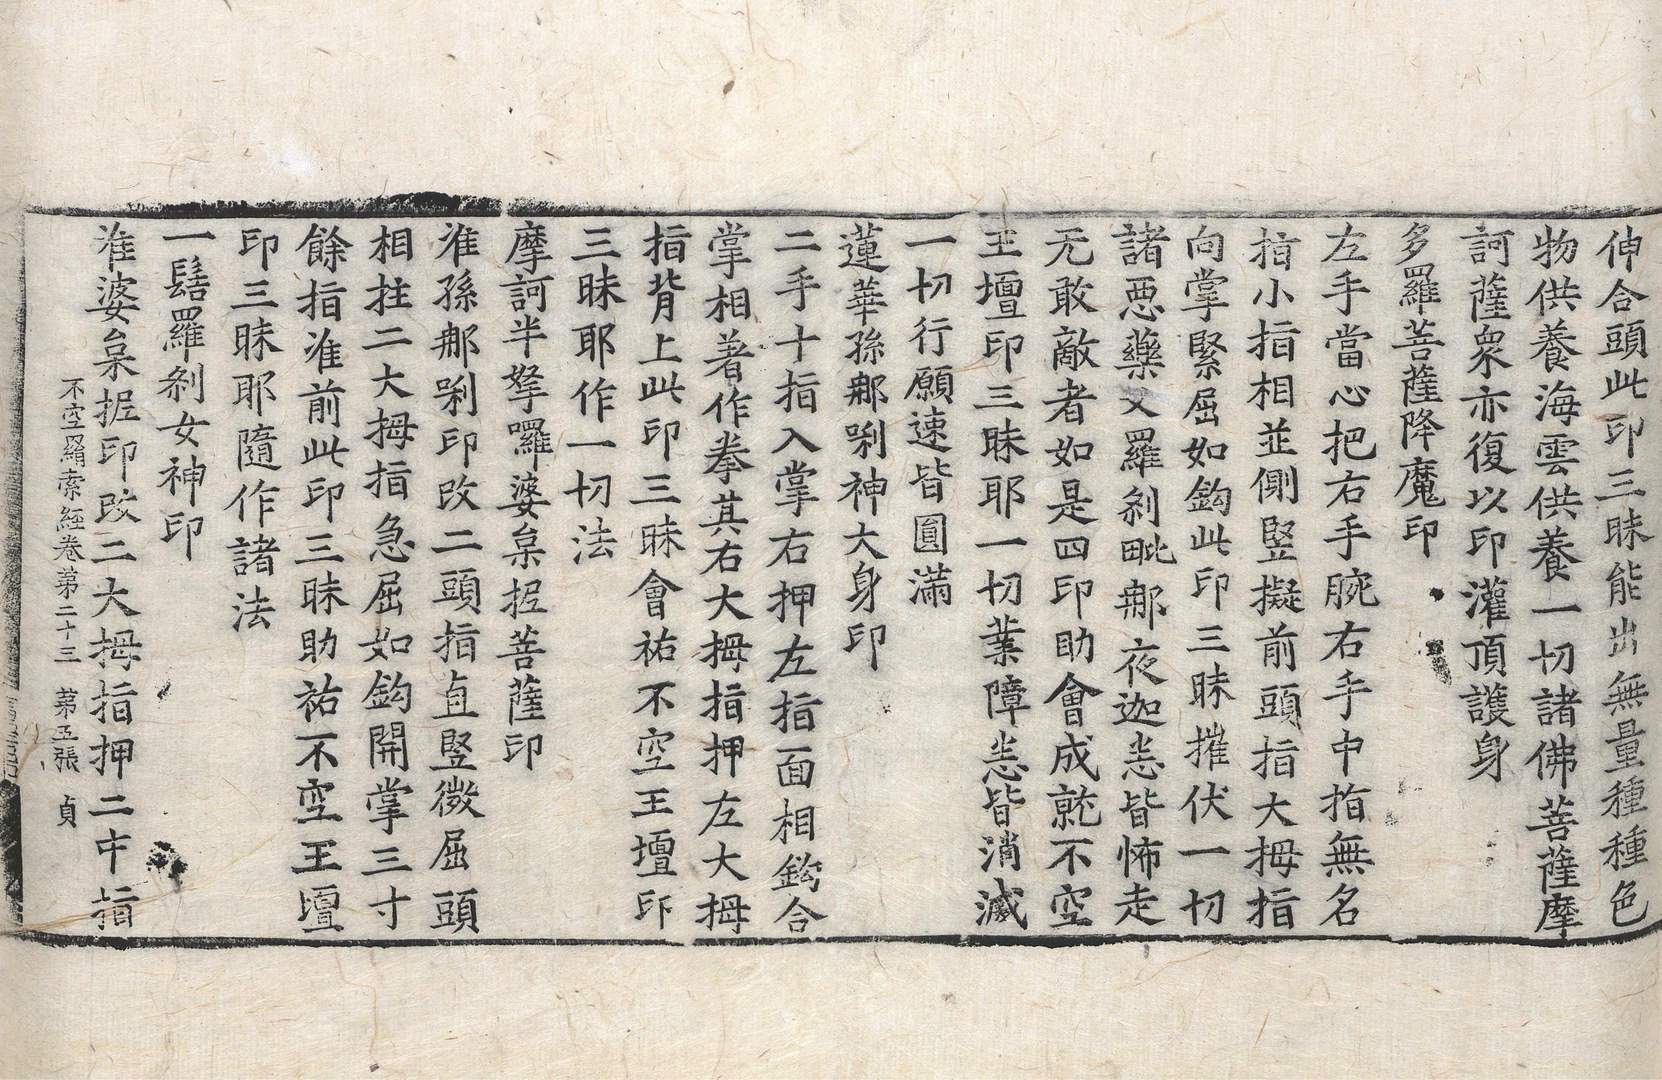 伸合頭此印三昧能出無量種種色
物供養海雲供養一切諸佛菩薩摩
訶薩衆亦復以印灌頂護身
多羅菩薩降魔印
左手當心把右手腕右手中指無名
指小指相並側竪擬前頭指大拇指
向掌緊屈如鈎此印三昧摧伏一切
諸惡藥叉羅剎毗那夜迦恙皆怖走
无敢敵者如是四印助會成就不空
王壇印三昧耶一切業障恙皆消滅
一切行願速皆圓滿
蓮華孫那唎神大身印
二手十指入掌右押左指面相鈎合
掌相著作拳其右大拇指押左大拇
指背上此印三昧會祐不空王壇印
三昧耶作一切法
摩訶半拏囉婆枲抳菩薩印
准孫那唎印改二頭指直竪微屈頭
相拄二大拇指急屈如鈎開掌三寸
餘指准前此印三昧助祐不空王壇
印三昧耶隨作諸法
一髻羅剎女神印
不空羂索經卷第二十三　第五張　貞
准婆枲抳印改二大拇指押二中指